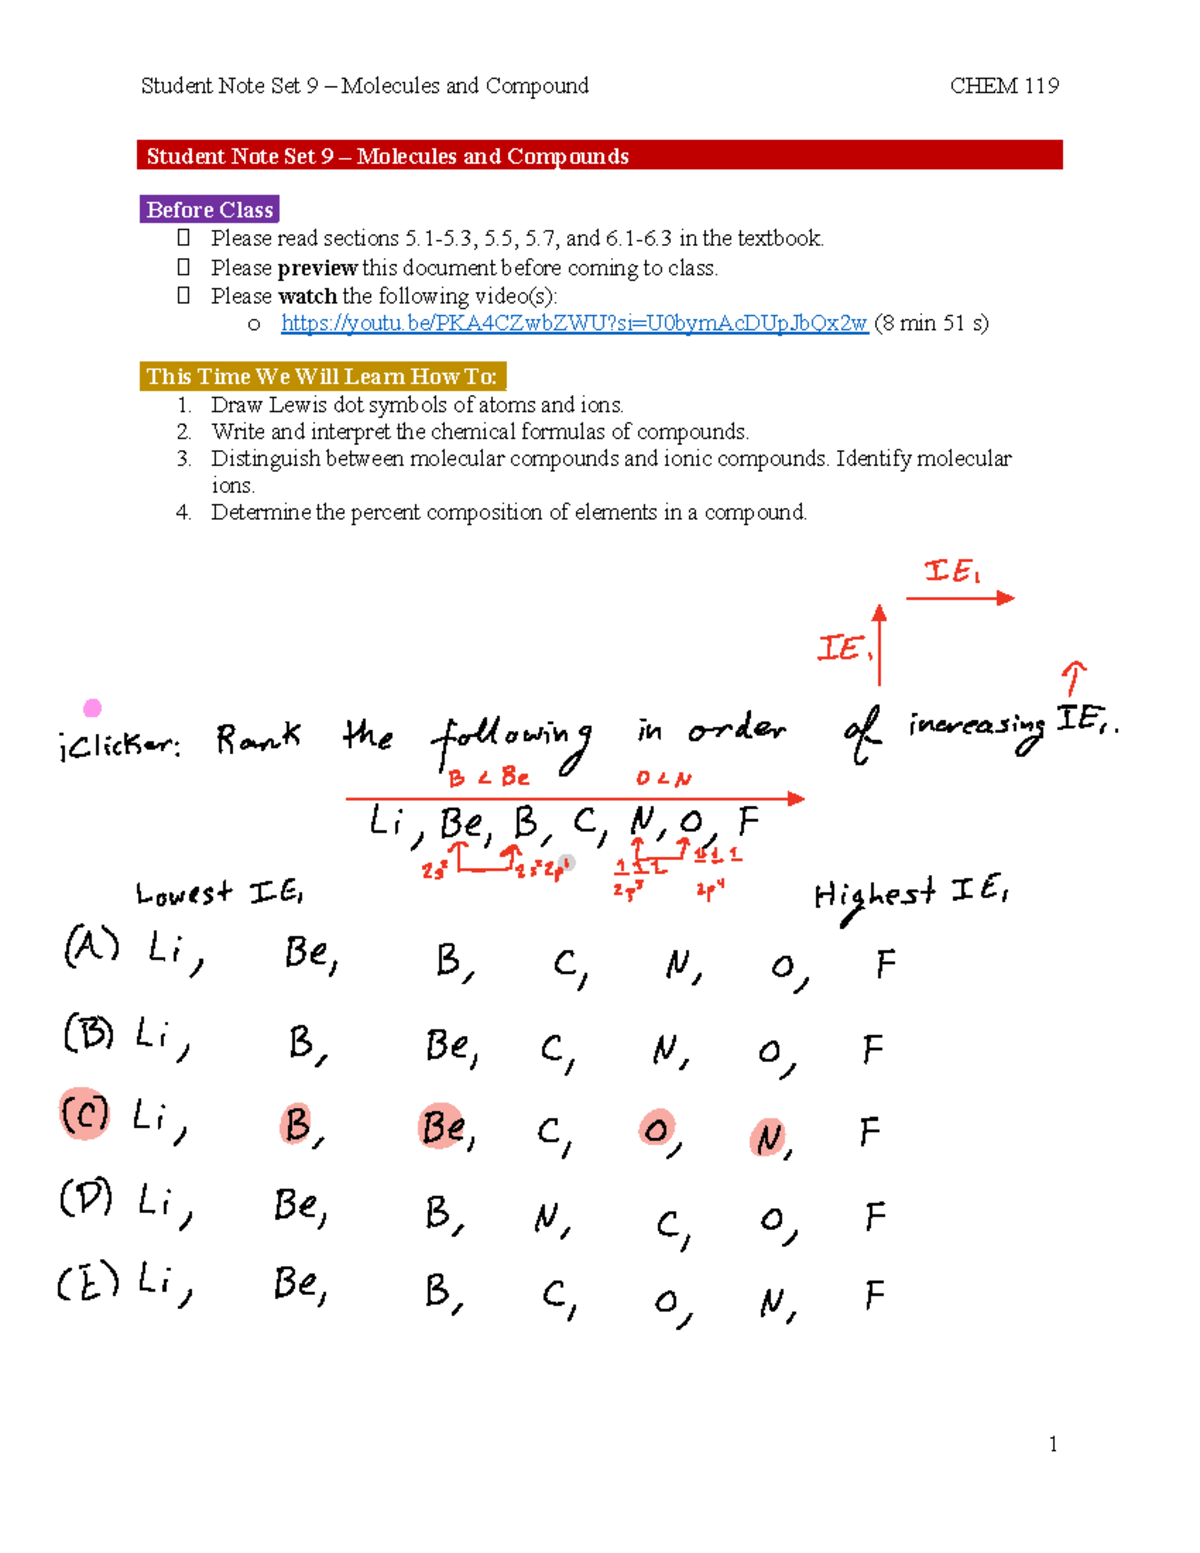 Student Note Set 9 – Molecules and Compound CHEM 119
Student Note Set 9 – Molecules and Compounds
Before Class
Please read sections 5.1-5.3, 5.5, 5.7, and 6.1-6.3 in the textbook.
Please preview this document before coming to class.
Please watch the following video(s):
o https://youtu.be/PKA4CZwbZWU?si=U0bymAcDUpJbQx2w (8 min 51 s)
This Time We Will Learn How To:
1. Draw Lewis dot symbols of atoms and ions.
2. Write and interpret the chemical formulas of compounds.
3. Distinguish between molecular compounds and ionic compounds. Identify molecular
ions.
4. Determine the percent composition of elements in a compound.
IE₁
IE₁
↑
iClicker: Rank the following in order of increasing IE₁.
B < Be O < N
Li, Be, B, C, N, O, F
2s² 2s²2p¹ 1 1 1 1L 1 1
2p³ 2p⁴
Lowest IE₁ Highest IE₁
(A) Li, Be, B, C, N, O, F
(B) Li, B, Be, C, N, O, F
(C) Li, B, Be, C, O, N, F
(D) Li, Be, B, N, C, O, F
(E) Li, Be, B, C, O, N, F
1